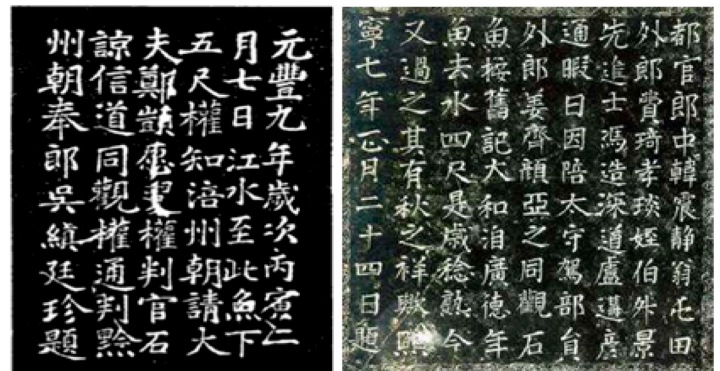 元豐九年歲次丙寅二
月七日江水至此魚下
五尺權知涪州朝請大
夫鄭顗愿叟權判官石
諒信道同觀權通判黔
州朝奉郎吳縝廷珍題
都官郎中韓震静翁屯田
外郎費琦孝琰姪伯升景
先進士馮造深道盧遘彥
通暇日因陪太守駕部員
外郎姜齊顏亞之同觀石
魚按舊記大和洎廣德年
魚去水四尺是歲稔熟今
又過之其有秋之祥歟熙
寧七年正月二十四日題